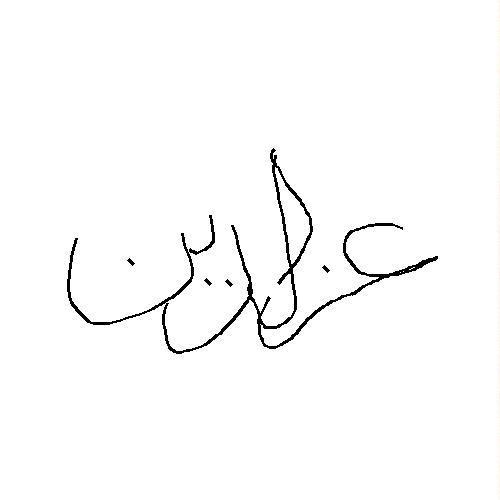 عزالدين